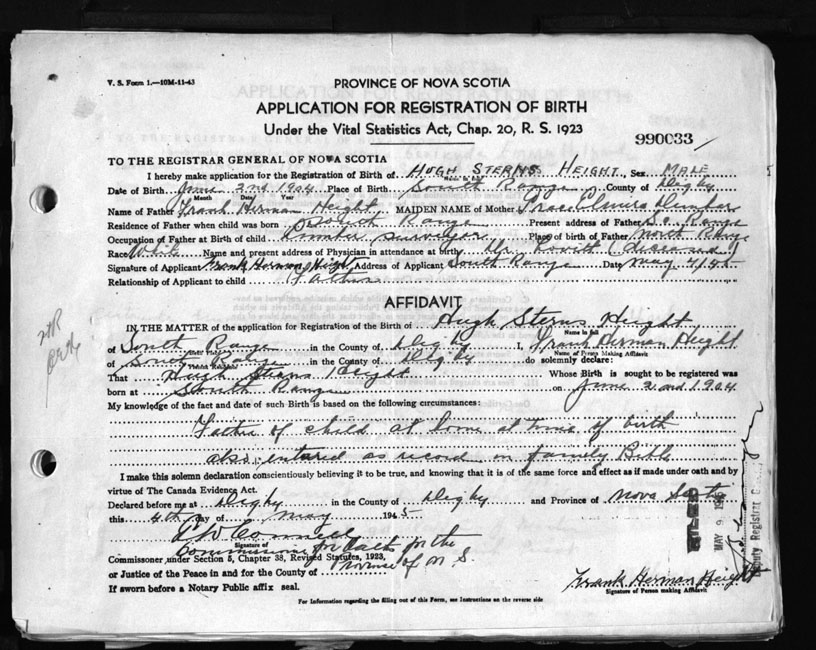 V. S. Form 1.—10M-11-43
PROVINCE OF NOVA SCOTIA
APPLICATION FOR REGISTRATION OF BIRTH
Under the Vital Statistics Act, Chap. 20, R. S. 1923
990033
TO THE REGISTRAR GENERAL OF NOVA SCOTIA
I hereby make application for the Registration of Birth of HUGH STERNS HEIGHT, Sex MALE
Date of Birth June 2nd 1904 Place of Birth South Range County of Digby
Month Date Year
Name of Father Frank Herman Height MAIDEN NAME of Mother Grace Elmira
Residence of Father when child was born South Range Present address of Father So. Range
Occupation of Father at Birth of child Lumber Surveyor Place of birth of Father North Range
Race White Name and present address of Physician in attendance at birth Dr. (deceased)
Signature of Applicant Frank Herman Height Address of Applicant South Range Date May 4/45
Relationship of Applicant to child Father
AFFIDAVIT
IN THE MATTER of the application for Registration of the Birth of Hugh Sterns Height
Name in full
of South Range in the County of Digby I, Frank Herman Height
Name of Person Making Affidavit
of South Range in the County of Digby do solemnly declare:
That Hugh Sterns Height Whose Birth is sought to be registered was
born at South Range on June 2nd 1904
My knowledge of the fact and date of such Birth is based on the following circumstances:
Father of child at home at time of birth
also entered as record in family Bible
I make this solemn declaration conscientiously believing it to be true, and knowing that it is of the same force and effect as if made under oath and by
virtue of The Canada Evidence Act.
Declared before me at Digby in the County of Digby and Province of Nova Scotia
this 4th day of May 1945
Signature of
Commissioner for Oaths for the
Province of N S.
Commissioner under Section 5, Chapter 38, Revised Statutes, 1923,
or Justice of the Peace in and for the County of
If sworn before a Notary Public affix seal.
Frank Herman Height
Signature of Person making Affidavit
For Information regarding the filling out of this Form, see Instructions on the reverse side
MAY 9
Deputy Registrar